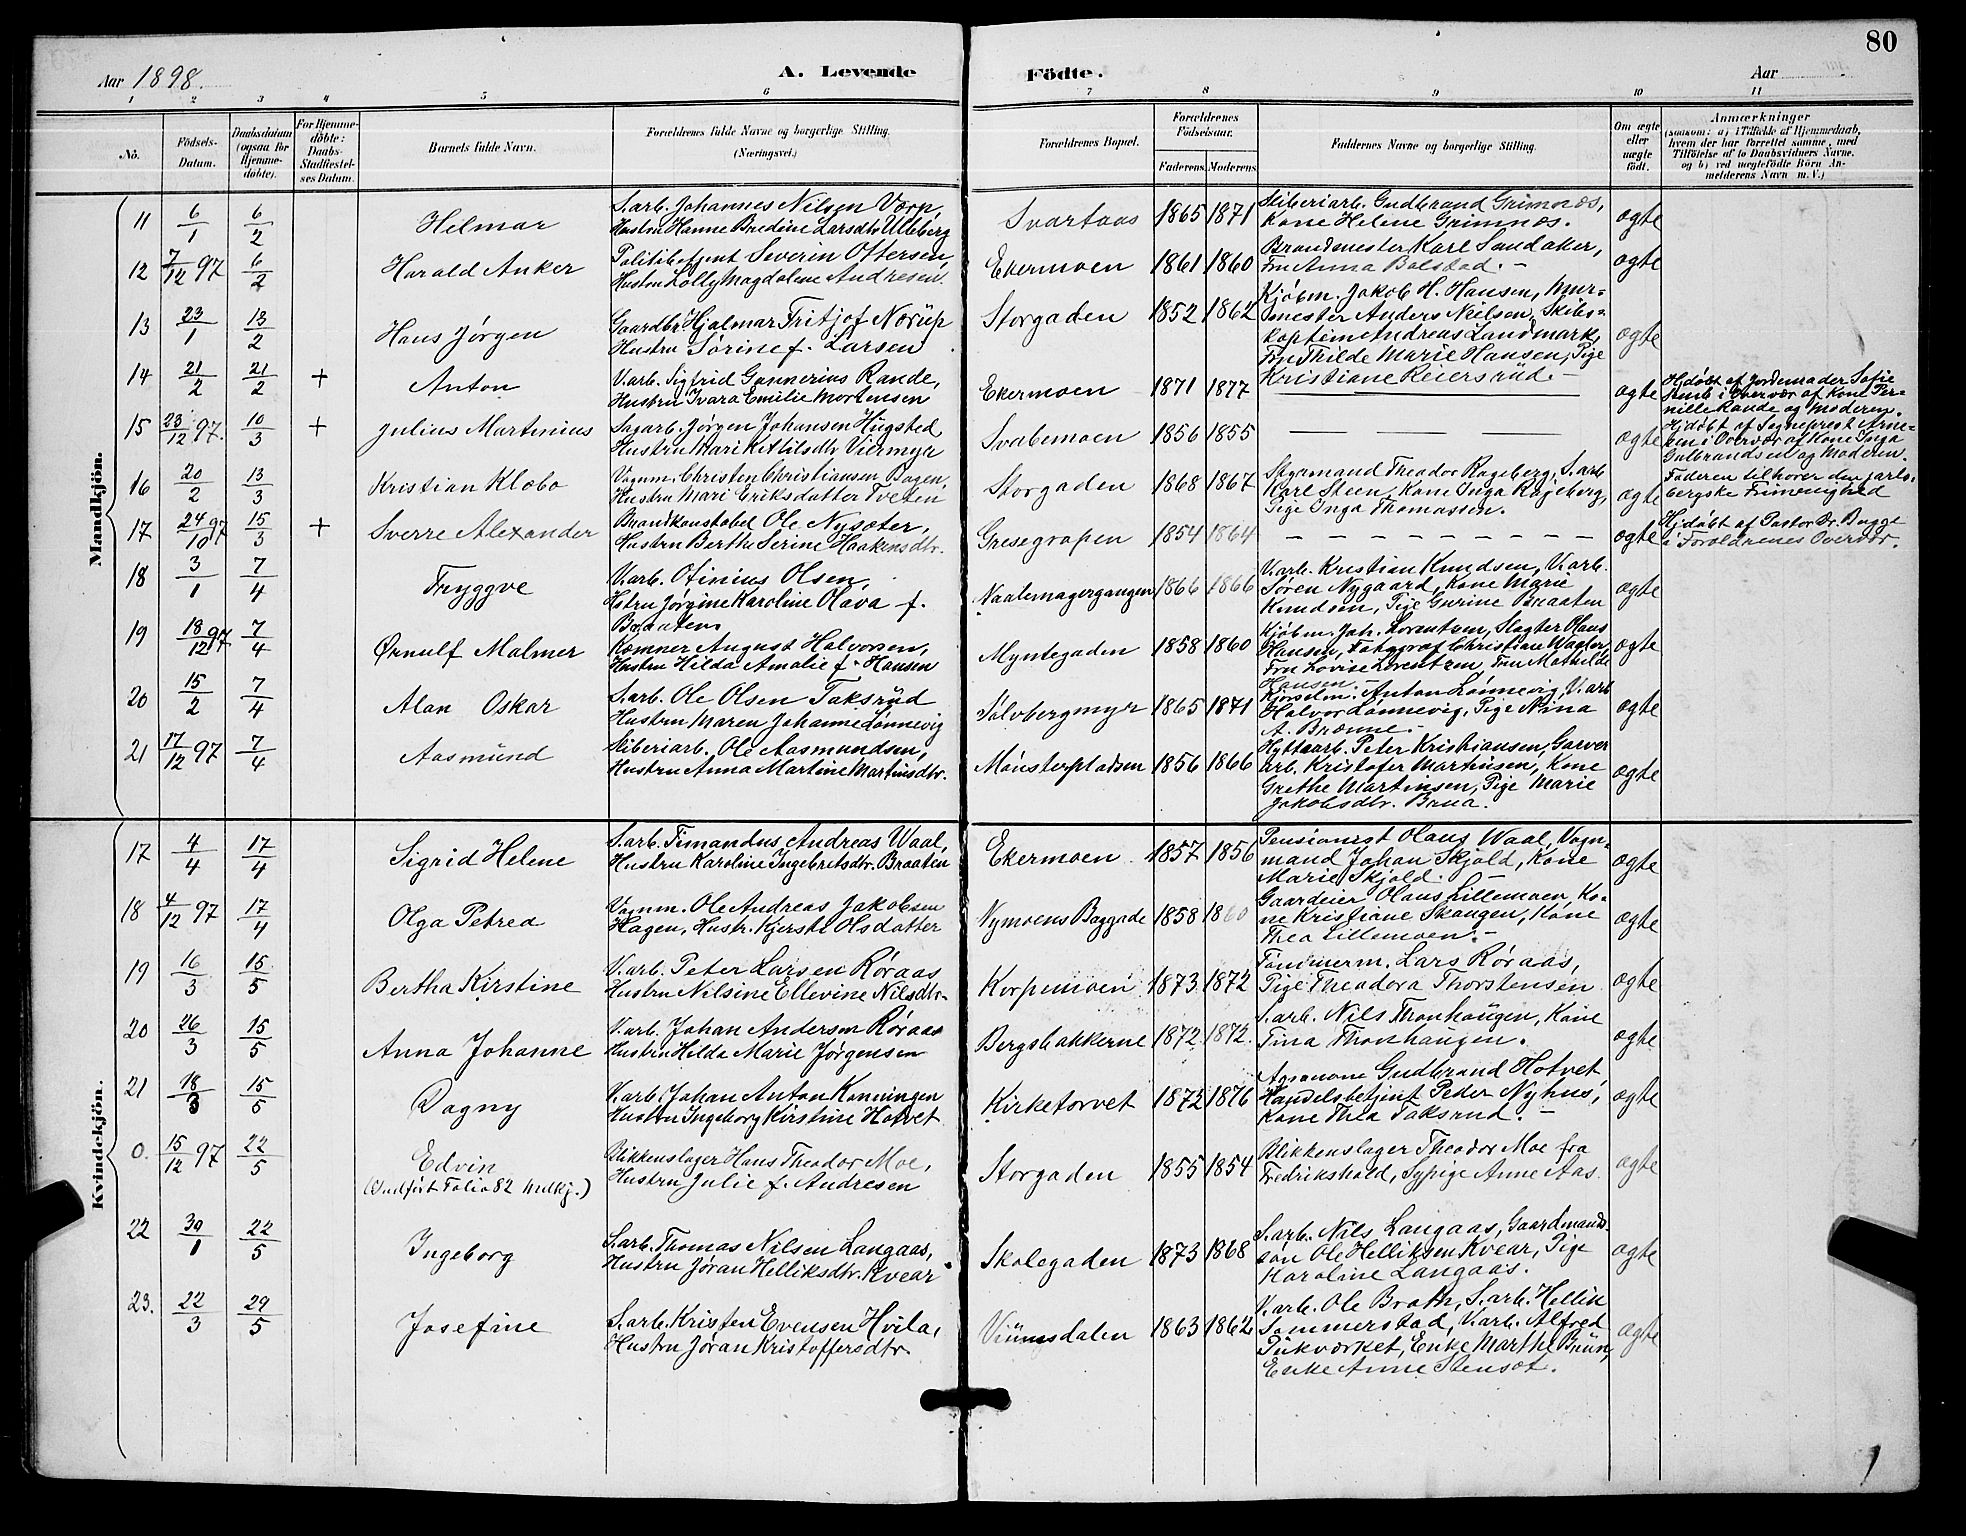 80
Aar 1898.
A. Levende
Födte.
Aar
1 2 3 4 5 6 7 8 9 10 11
No.
Födsels-Datum.
Daabsdatum (ogsaa for Hjemme-döbte).
For Hjemme-döbte: Daabs-Stadfæstel-ses Datum.
Barnets fulde Navn.
Forældrenes fulde Navne og borgerlige Stilling. (Næringsvei.)
Forældrenes Bopæl.
Forældrenes Födselsaar.
Faderens Moderens
Faddernes Navne og borgerlige Stilling.
Om ægte eller uægte födt.
Anmærkninger
(saasom: a) i Tilfælde af Hjemmedaab, hvem der har forrettet samme, med Tilföielse af to Daabsvidners Navne. og b) ved uægtefödte Börn Anmelderens Navn m. V.)
Mandkjön.
11 6/1 6/2 Hilmar
S.arb. Johannes Nilsen Værp,
Hustru Hanne Bredine Larsdtr Ulleberg
Svartaas 1865 1871
Sliberiarb. Gudbrand Grimnæs,
Kone Helene Grimnæs.
ægte
12 7/12 97 6/2 Harald Anker
Politibetjent Severin Ottersen,
Hustru Lolly Magdalene Andresen.
Ekermoen 1861 1860
Brandmester Karl Sandaker,
Fru Anna Bolstad.
ægte
13 23/1 13/2 Hans Jørgen
Gaardbr. Hjalmar Fritjof Nørup
Hustru Sørine f. Larsen
Storgaden 1852 1862
Kjøbm. Jakob H. Hansen, Mur-
mester Anders Nielsen, Skibs-
kaptein Andreas Landmark,
Fru Thilde Marie Hansen, Pige
Kristiane Reiersrud.
ægte
14 21/2 21/2 + Anton
V.arb. Sigfrid Gunnerius Rande,
Hustru Ivara Emilie Mortensen
Ekermoen 1871 1877
ægte
Hjdøbt af Jordemoder Sofie
i Overvær af Kone Per-
nille Rande og Moderen.
15 23/12 97. 10/3 + Julius Martinius
Sagarb. Jørgen Johansen Hugsted,
Hustru Mari Kittilsdtr Viermyr
Svabemoen 1856 1855
ægte
Hjdøbt af Sogneprest Arne-
sen i Overvær af Kone Inga
Gulbrandsen og Moderen.
16 20/2 13/3 Kristian Klæbo
Vognm. Christen Christiansen Bagen,
Hustru Mari Eriksdatter Tveten
Storgaden 1868 1867
Styrmand Theodor Rageberg, S.arb.
Karl Steen, Kone Inga Rageberg,
Pige Inga Thomassen.
ægte
Faderen tilhører den jarls-
bergske Frimenighed
17 24/10 97 15/3 + Sverre Alexander
Brandkonstabel Ole Nysæter,
Hustru Berthe Serine Haakensdtr.
Gresegropen 1854 1864
ægte
Hjdøbt af Pastor Dr. Bugge
i Forældrenes Overvær.
18 3/1 7/4 Tryggve
V.arb. Ofinius Olsen,
Hstru Jørgine Karoline Olava f.
Braaten
Naalemagergangen 1866 1866
V.arb. Kristian Knudsen, V.arb.
Søren Nygaard, Kone Marie
Knudsen, Pige Gurine Braaten
ægte
19 18/12 97 7/4 Ørnulf Malmer
Kæmner August Halvorsen,
Hustru Hilda Amalie f. Hansen
Myntegaden 1858 1860
Kjøbm. Joh. Lorentzen, Slagter Olaus
Hansen, Fotograf Christian Waaler,
Fru Lovise Lorentzen, Fru Mathilde
Hansen.
ægte
20 15/2 7/4 Alan Oskar
S.arb. Ole Olsen Taksrud
Hustru Maren Johanne Lønnevig
Sølvbergmyr 1865 1871
Kjørselm. Anton Lønnevig, V.arb
Halvor Lønnevig, Pige Nina
A. Brænne.
ægte
21 17/12 97 7/4 Aasmund
Sliberiarb. Ole Aasmundsen,
Hustru Anna Martine Martinsdtr.
Mønsterpladsen 1856 1866
Hyttearb. Peter Kristiansen, Garver
arb. Kristofer Martinsen, Kone
Grethe Martinsen, Pige Marie
Jakobsdtr. Brua.
ægte
Kvindekjön.
17 4/4 17/4 Sigrid Helene
S.arb. Timandus Andreas Waal,
Hustru Karoline Ingebretsdtr. Braaten
Ekermoen 1857 1856
Pensionist Olaus Waal, Vogn-
mand Johan Skjold, Kone
Marie Skjold.
ægte
18 4/12 97 17/4 Olga Petrea
Vognm. Ole Andreas Jakobsen
Hagen, Hustr. Kjersti Olsdatter
Nymoens Baggade 1858 1860
Gaardeier Olaus Lillemoen, Ko-
ne Kristiane Skaugen, Kone
Thea Lillemoen.
ægte
19 16/3 15/5 Bertha Kirstine
V.arb. Peter Larsen Røraas
Hustru Nilsine Ellevine Nilsdtr.
Korpemoen 1873 1872
Tømmerm. Lars Røraas,
Pige Theodora Thorstensen
ægte
20 26/3 15/5 Anna Johanne
V.arb. Johan Andersen Røraas
Hustru Hilda Marie Jørgensen
Bergsbakkerne 1872 1872.
S.arb. Nils Thonhaugen, Kone
Tina Thonhaugen.
ægte
21 18/3 15/5 Dagny
V.arb. Johan Anton Kønningen
Hustru Ingeborg Kirstine Hotvet
Kirketorvet 1872 1876
Agronom Gudbrand Hotvet,
Handelsbetjent Peder Nyhus,
Kone Thea Taksrud.
ægte
0. 15/12 97 22/5 Edvin
(Indført Folio 82 Mdkj.)
Blikkenslager Hans Theodor Moe,
Hustru Julie f. Andresen
Storgaden 1855 1854
Blikkenslager Theodor Moe fra
Fredrikshald, Sypige Anne Aas.
ægte
22 30/1 22/5 Ingeborg
S.arb. Thomas Nilsen Langaas,
Hustru Jøran Helliksdtr. Kvear
Skolegaden 1873 1868
S.arb. Nils Langaas, Gaardmands-
søn Ole Helliksen Kvear, Pige
Karoline Langaas.
ægte
23. 22/3 29/5 Josefine
S.arb. Kristen Evensen Hvila,
Hustru Jøran Kristoffersdtr.
Viumsdalen 1863 1862
V.arb. Ole Brath, S.arb. Hellik
Sommerstad, V.arb. Alfred
Pukværket, Enke Marthe Bruun,
Enke Anne Stensæt.
ægte